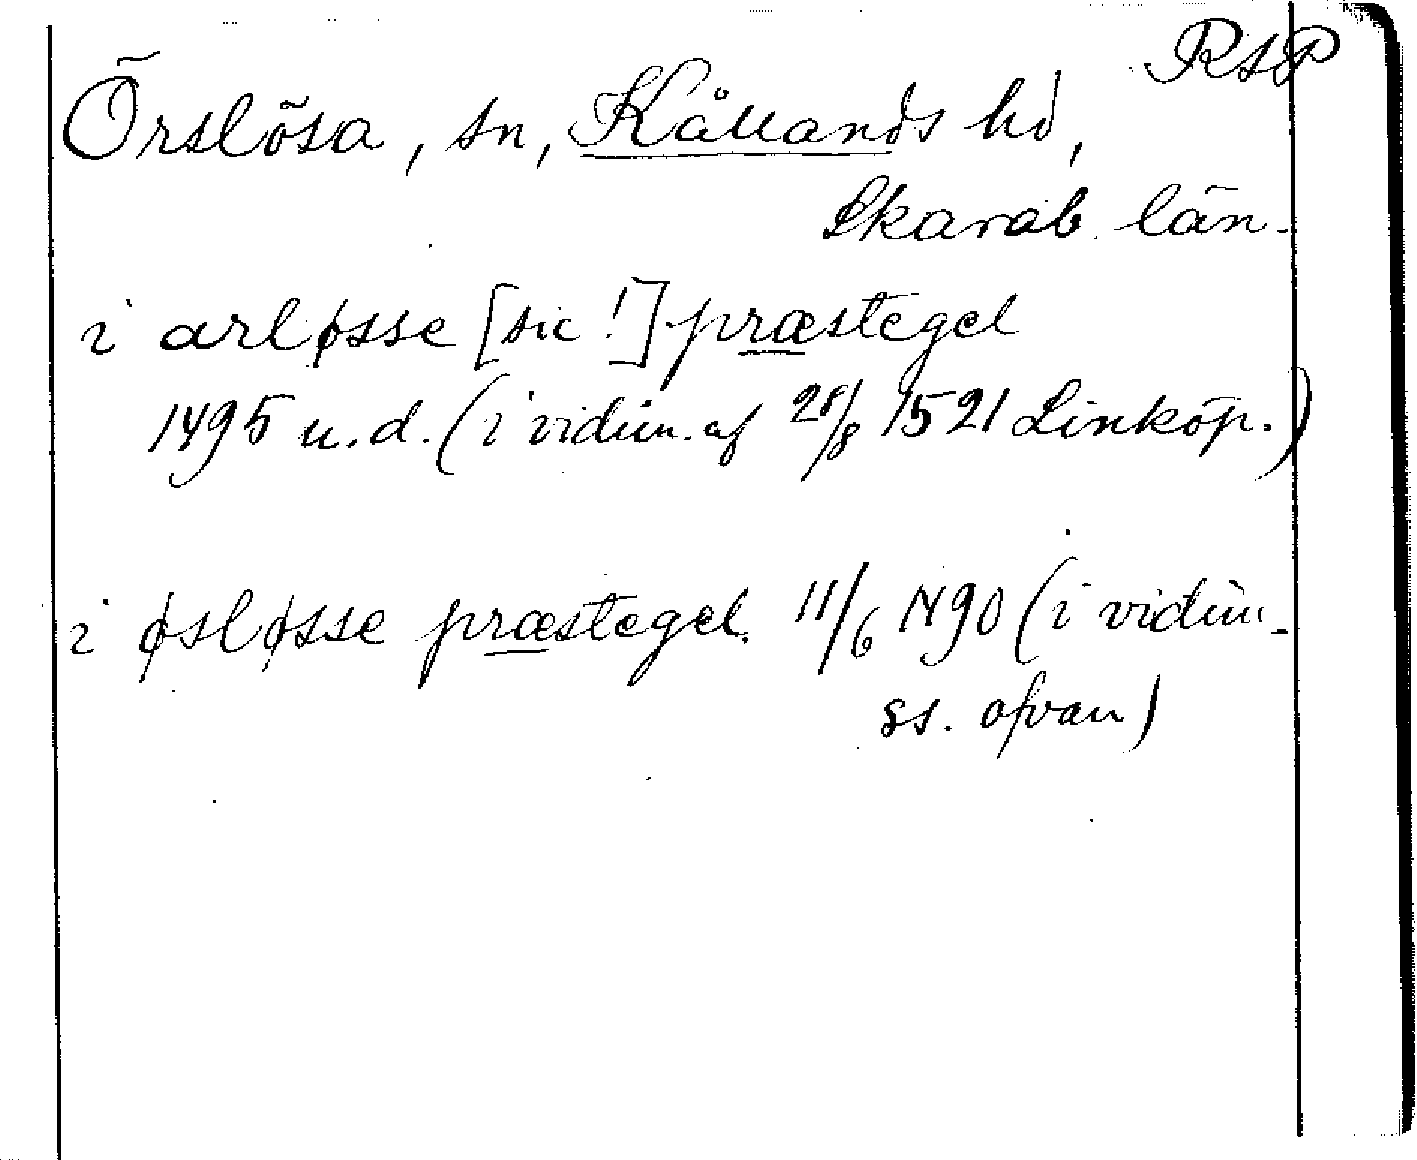 RAP
Örslösa, sn, Kållands hd,
Skarab. län.
i arløsse [sic!] præstegel
1495 u.d. (i vidim. af 28/8 1521 Linköp.)
i øsløsse præstegel. 11/6 1490 (i vidim.
ss. ofvan)